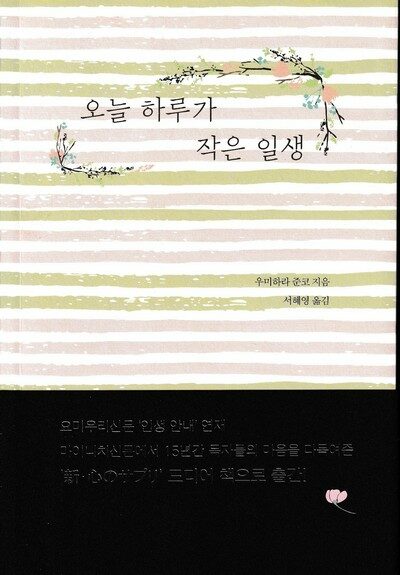 오늘 하루가
작은 일생
우미하라 준코 지음
서혜영 옮김
요미우리신문 '인생 안내' 연재
마이니치신문에서 15년간 독자들의 마음을 다독여준
'新·心のサプリ' 드디어 책으로 출간!